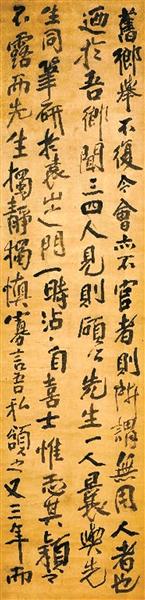 舊鄉舉不復今會亦不官者則所謂無用人者也
迺於吾鄉聞三四人見則顧公先生一人曩與先
生同筆研於袁山之門一時沾沾自喜士惟恐其穎之
不露而先生獨靜獨慎寡言吾私頷之又三年而